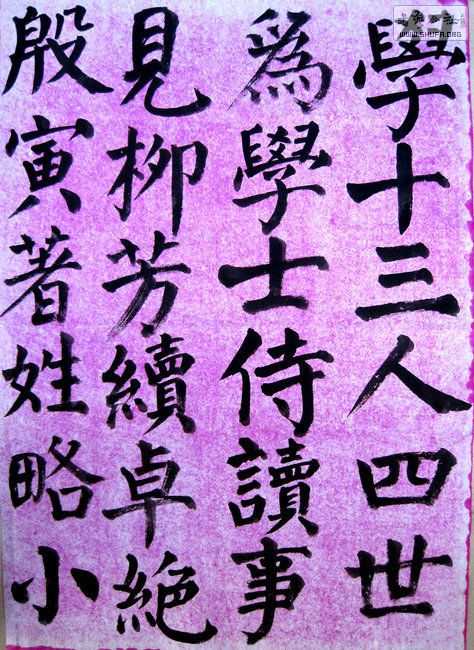 學十三人四世
爲學士侍讀事
見柳芳續卓絕
殷寅著姓略小
WWW.SHUFA.ORG